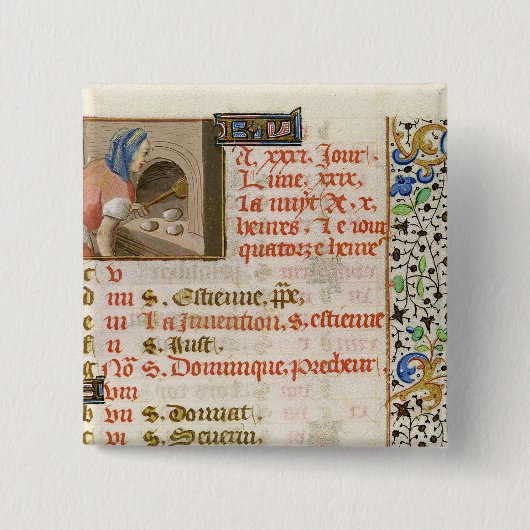 A. xxxi. Jour
Lune, xxix,
La nuyt A. x,
heures, Le iour
quatorze heure
c v
d iiii S. Estienne, ppe,
e iii La Jnvention, S. estienne
f ii S. Just,
No S. Dominique, precheur
viii
b vii S. Donnat,
c vi S. Severin,